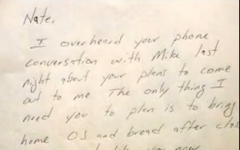 Nate,
I overheard your phone
conversation with Mike last
night about your plans to come
out to me. The only thing I
need you to plan is to bring
home OJ and bread after class
you now